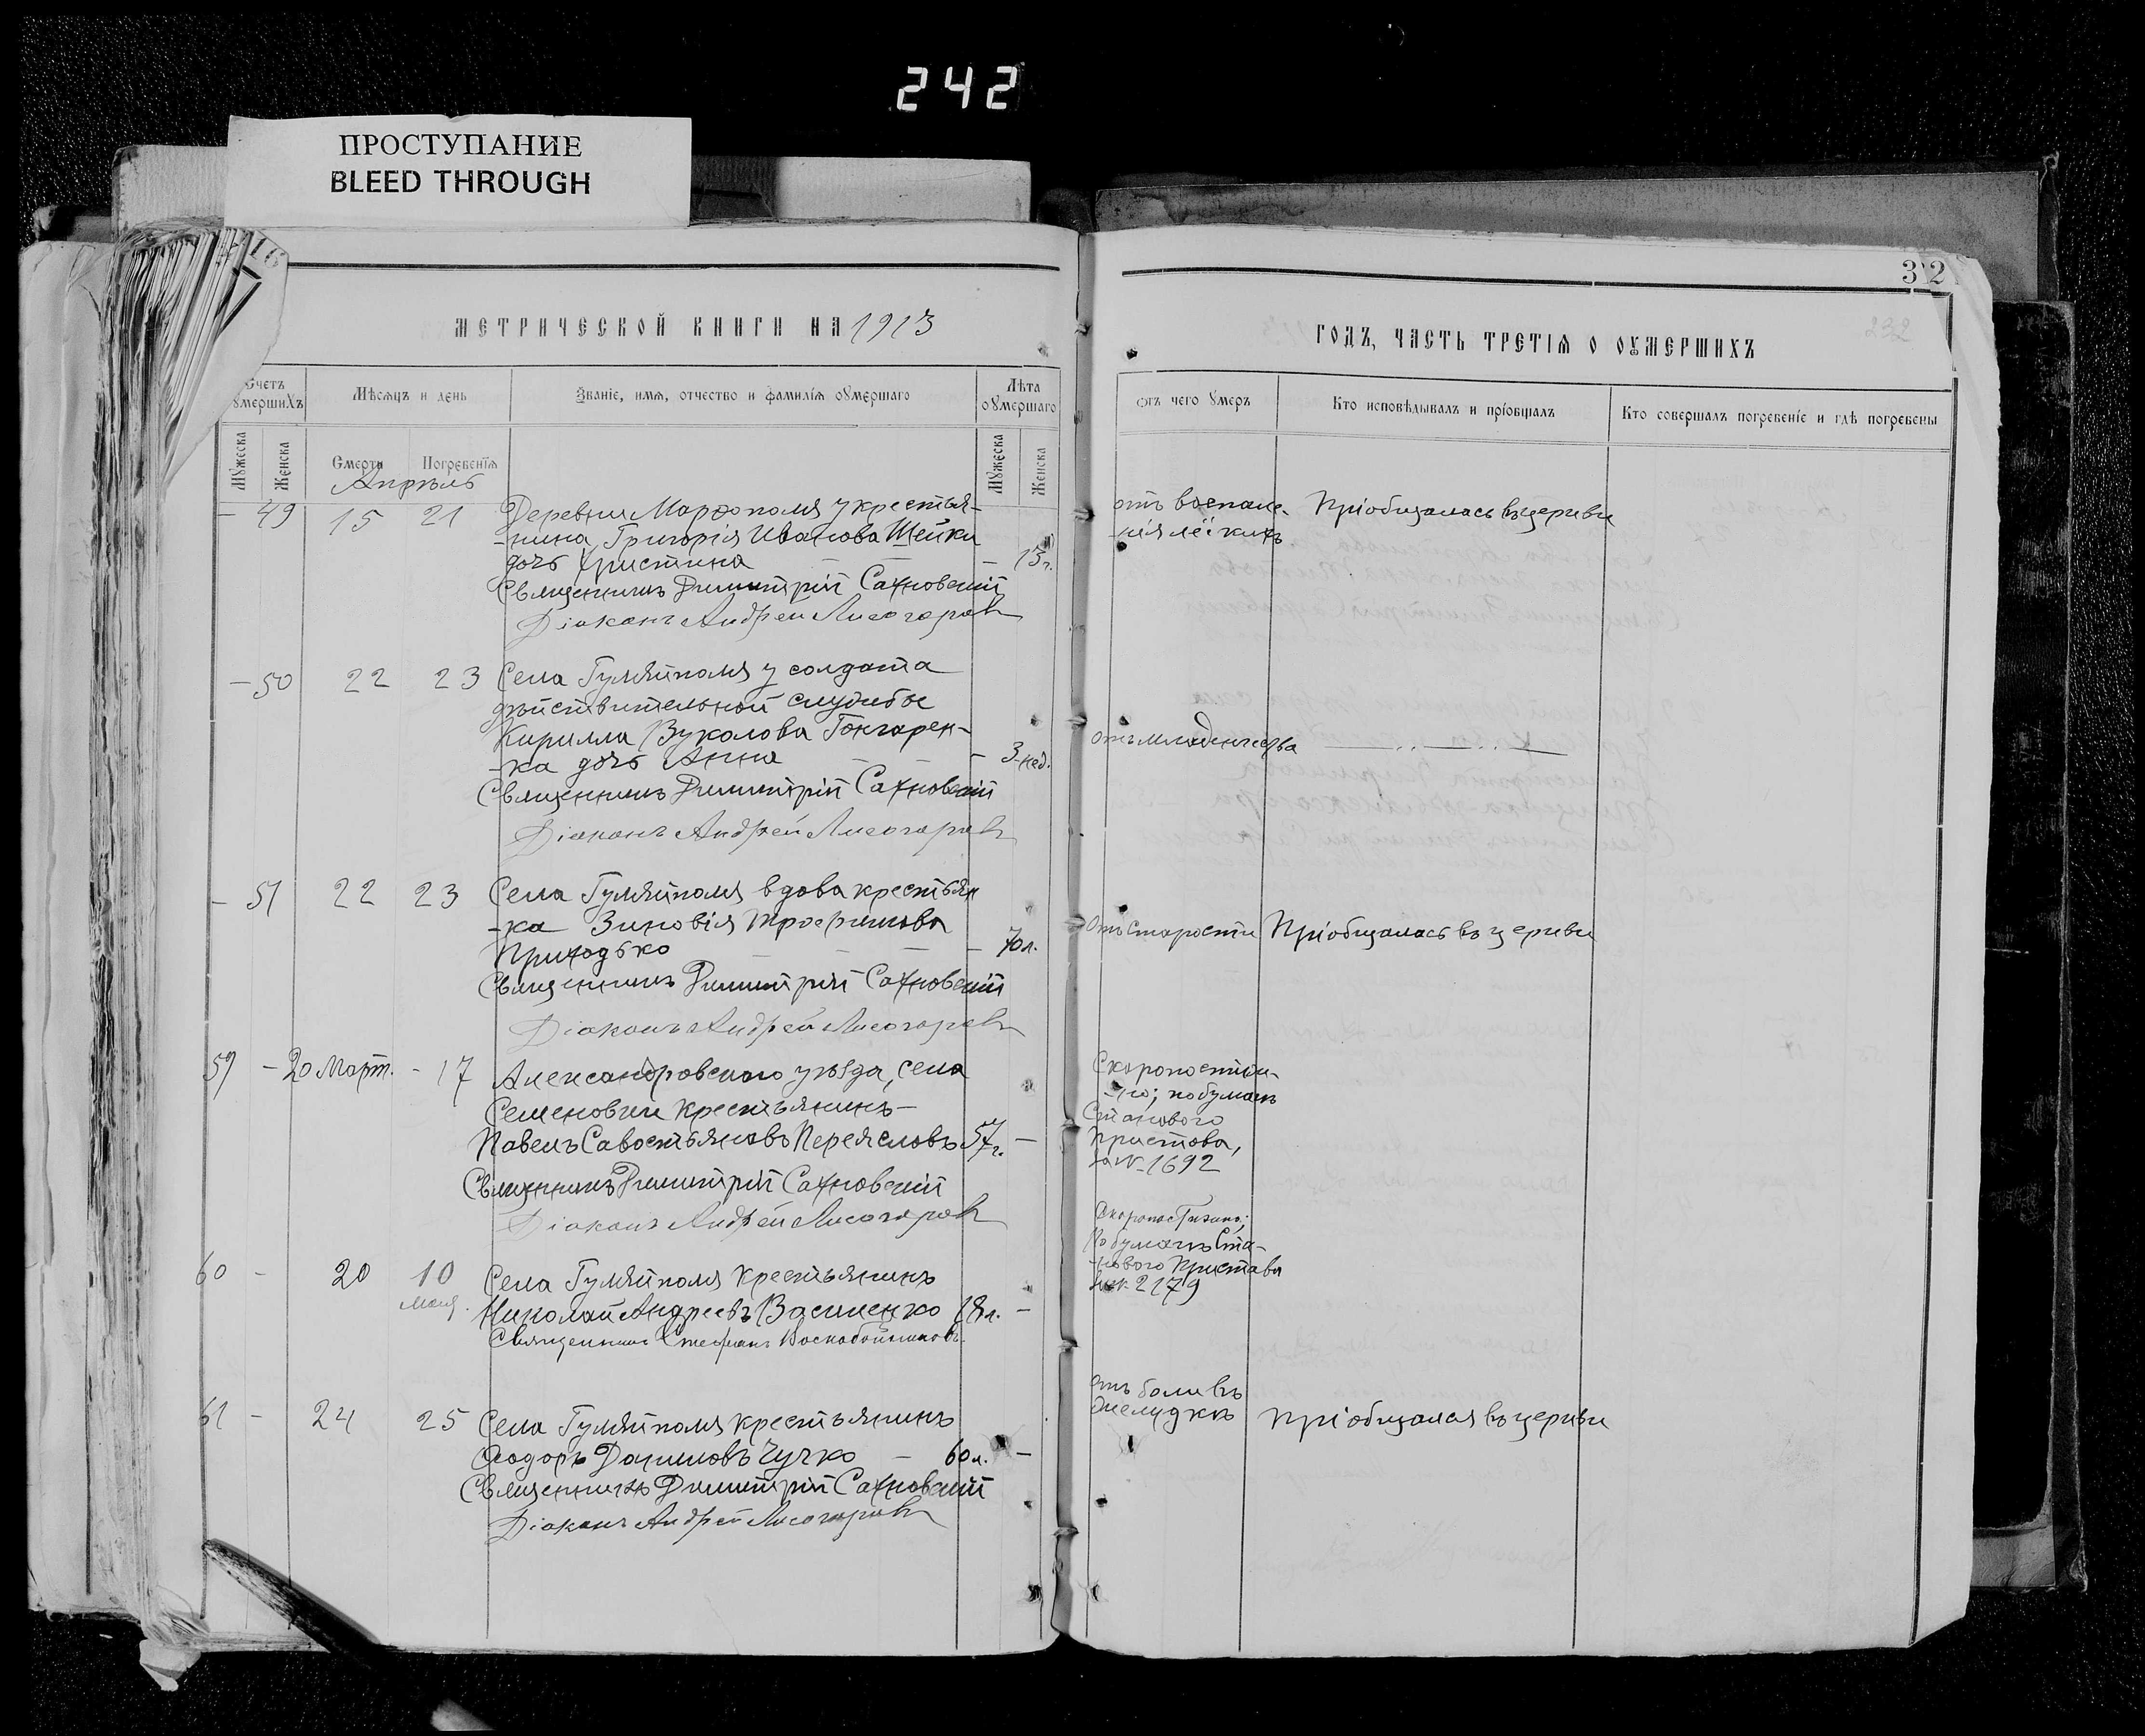 242
ПРОСТУПАНИЕ
BLEED THROUGH
16
МЕТРИЧЕСКОЙ КНИГИ НА 1913
Счетъ умершихъ
Мѣсяцъ и день
Званіе, имя, отчество и фамилія оумершаго
Лѣта оумершаго
Мужеска
Женска
Смерти
Погребенія
Мужеска
Женска
Апрѣль
- 49 15 21 Деревни Марфополя у крестья-
-нина Григорія Иванова Шейки
дочь Христина - 13 г.
Священникъ Димитрій Сахновскій
Діаконъ Андрей Лисогоровъ
- 50 22 23 Села Гуляйполя у солдата
дѣйствительной службы
Кирилла Вуколова Гончарен-
-ка дочь Анна - 3 нед.
Священникъ Димитрій Сахновскій
Діаконъ Андрей Лисогоровъ
- 51 22 23 Села Гуляйполя вдова крестьян
-ка Зиновія Трофимова
Приходько - 70 л.
Священникъ Димитрій Сахновскій
Діаконъ Андрей Лисогоровъ
59 - 20 Март. - 17 Александровскаго уѣзда, села
Семеновки крестьянинъ
Павелъ Савостьяновъ Переясловъ 57 г. -
Священникъ Димитрій Сахновскій
Діаконъ Андрей Лисогоровъ
60 - 20 10 Села Гуляйполя крестьянинъ
мая. Николай Андреевъ Василенко 18 л. -
Священникъ Стефанъ Воскобойниковъ
61 - 24 25 Села Гуляйполя крестьянинъ
Ѳеодоръ Даниловъ Чучко - 60 л. -
Священникъ Димитрій Сахновскій
Діаконъ Андрей Лисогоровъ
32
232
ГОДЪ, ЧАСТЬ ТРЕТІЯ О ОУМЕРШИХЪ
отъ чего умеръ
Кто исповѣдывалъ и пріобщалъ
Кто совершалъ погребеніе и гдѣ погребены
отъ воспале- Пріобщалась въ церкви
-нія лёгкихъ
отъ младенчества
отъ старости Пріобщалась въ церкви
Скоропостиж-
-но; по бумагѣ
Станового
Пристава,
за № 1692
Скоропостижно;
По бумагѣ Ста-
-нового Пристава
за № 2179
отъ боли въ
желудкѣ Пріобщался въ церкви